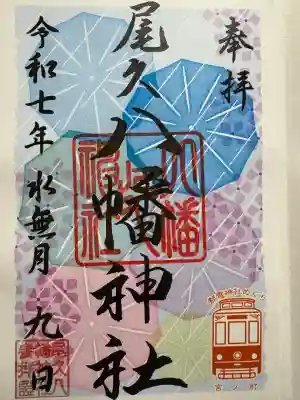 奉拝
尾久八幡神社
令和七年 水無月 九日
八幡
神社
都電神社めぐり
宮ノ前